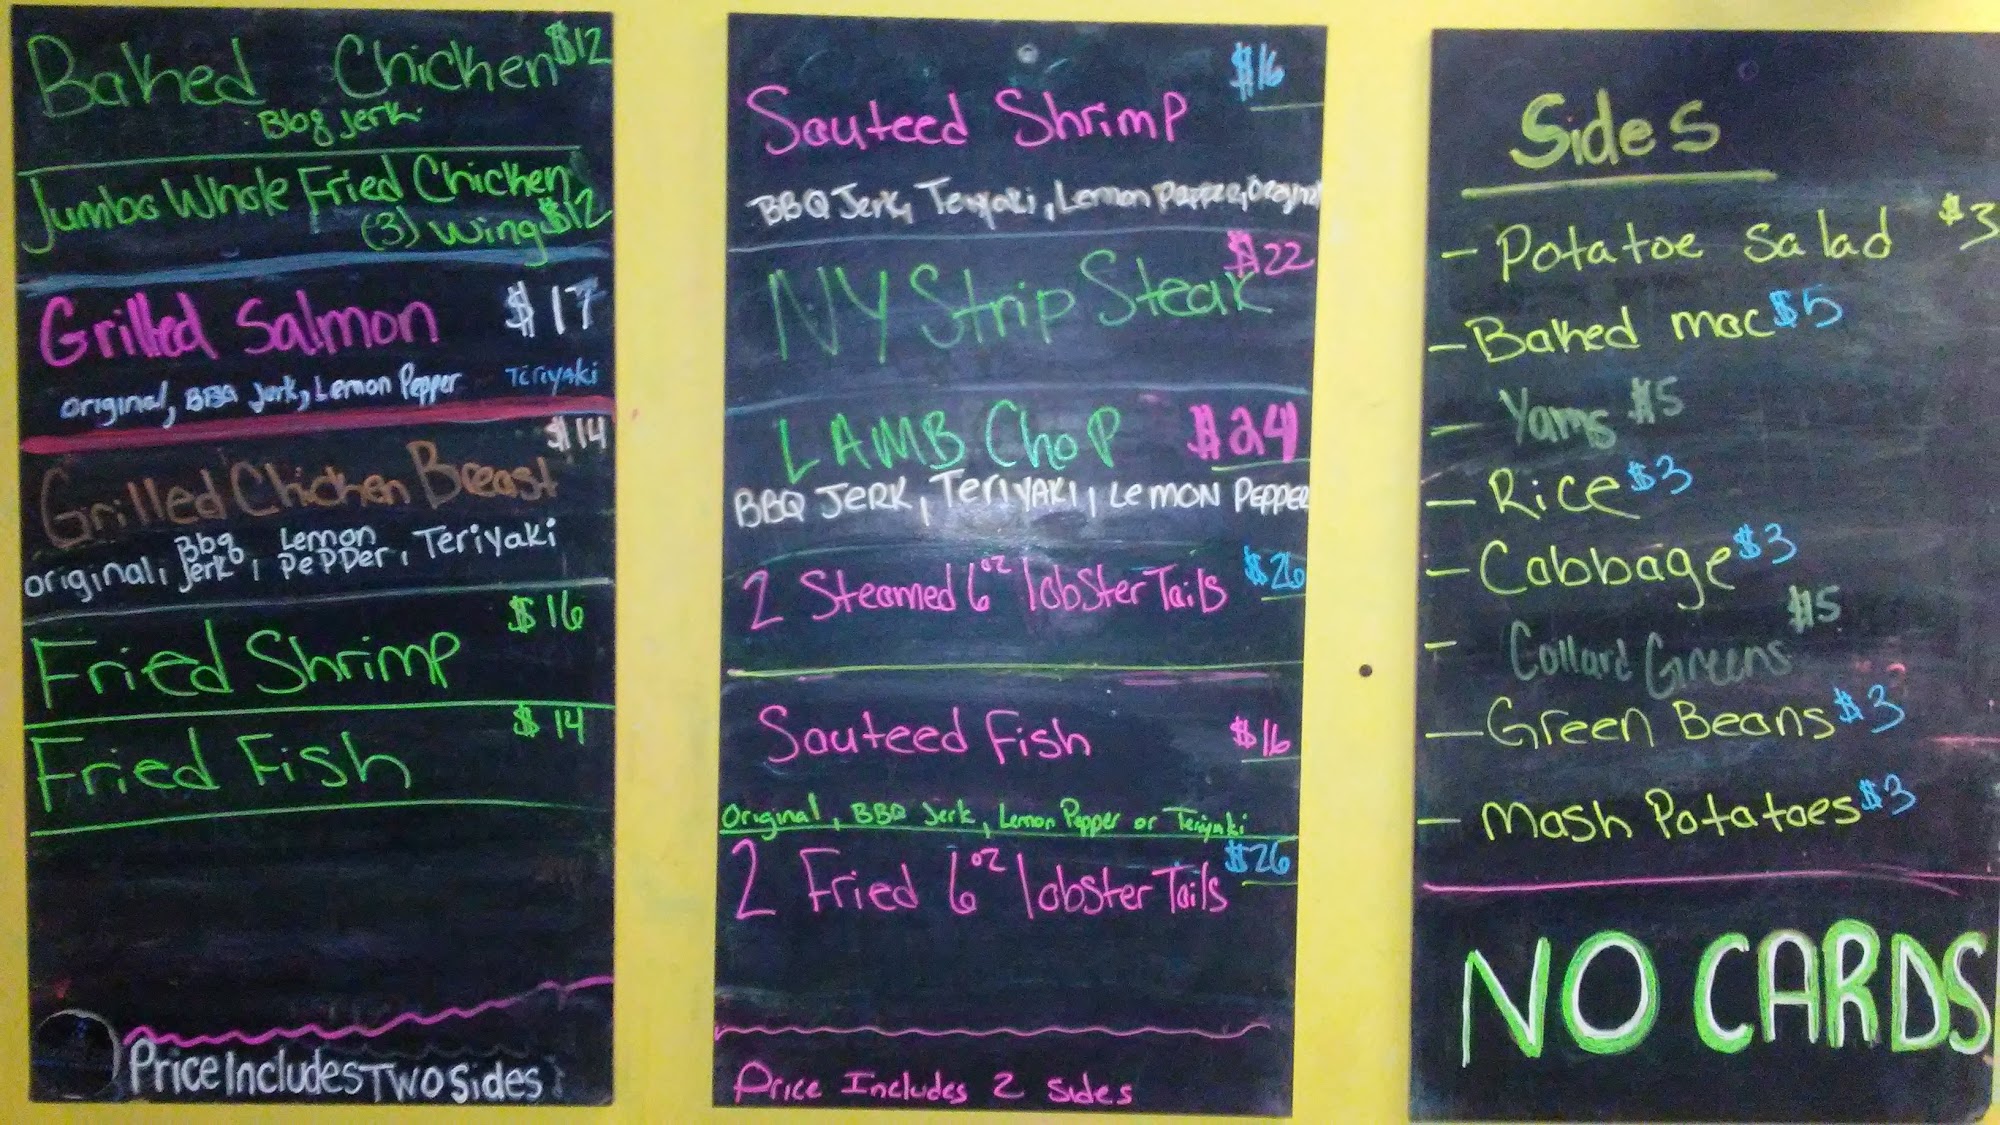 Baked Chicken $12
Bbq Jerk
Jumbo Whole Fried Chicken
(3) Wing $12
Grilled Salmon $17
Original, BBQ Jerk, Lemon Pepper Teriyaki
$14
Grilled Chicken Breast
original, Bbq Jerk, Lemon PePPer, Teriyaki
$16
Fried Shrimp
$14
Fried Fish
Price Includes Two Sides
$16
Sauteed Shrimp
BBQ Jerk, Teriyaki, Lemon Pepper, Original
$22
NY Strip Steak
LAMB Chop $24
BBQ JERK, TERIYAKI, LEMON PEPPER
2 Steamed 6oz lobster Tails $26
Sauteed Fish $16
Original, BBQ Jerk, Lemon Pepper or Teriyaki
2 Fried 6oz lobster Tails $26
Price Includes 2 Sides
Sides
- Potatoe Salad $3
- Baked mac $5
- Yams $5
- Rice $3
- Cabbage $3
- Collard Greens $5
- Green Beans $3
- Mash Potatoes $3
NO CARDS